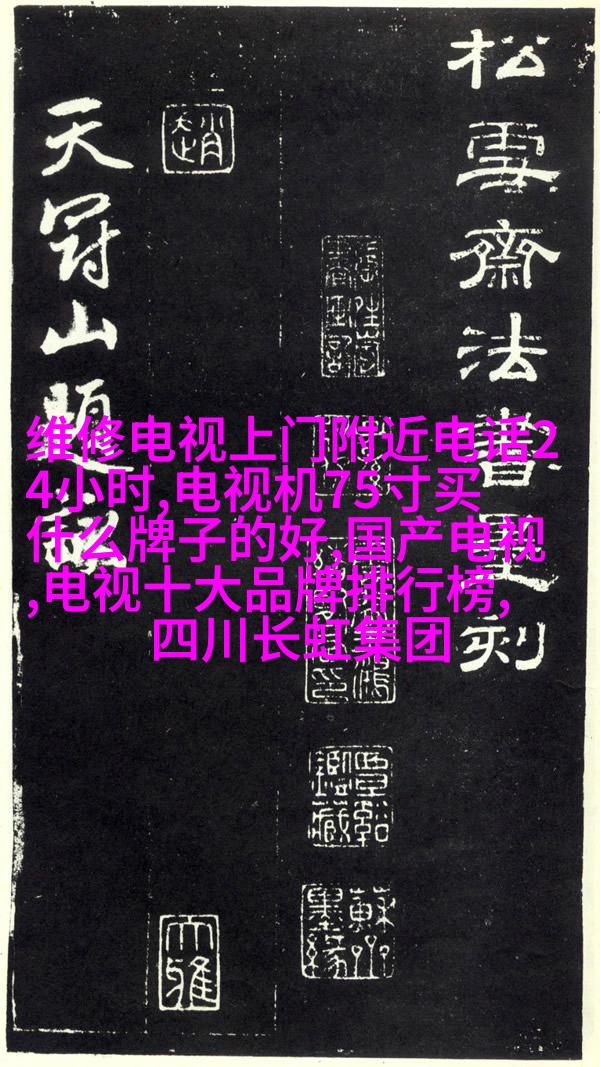 松雪齋法書墨刻
覃谿鑑藏
趙
大雅
天冠山題詠
维修电视上门附近电话2
4小时,电视机75寸买
什么牌子的好,国产电视
,电视十大品牌排行榜,
四川长虹集团